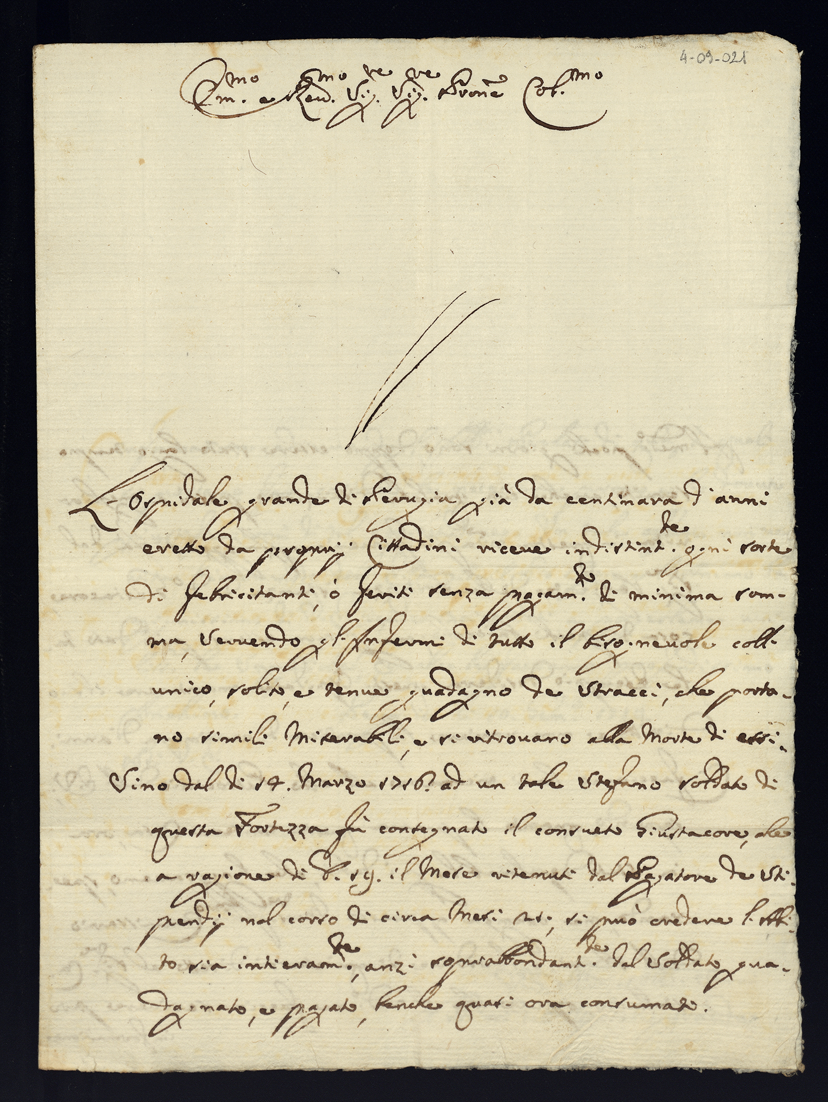 4-09-021
Em.mo e Rev.mo Sig.re Sig.re Prone Col.mo
L'Ospidale grande di Perugia già da centinara d'anni
eretto da proprij Cittadini riceve indistint.te ogni sorte
di febricitanti, ò feriti senza pagam.to di minima som-
ma, servendo gl'Infermi di tutto il bisognevole coll'
unico, solito, e tenue guadagno de stracci, che porta-
no simili Miserabili, e si ritrovano alla Morte di essi.
Sino dal di 14. Marzo 1716. ad un tale Stefano soldato di
questa Fortezza fù consegnato il consueto Giustacore, che
a ragione di b. 19. il Mese ritenuti dal Pagatore de Sti-
pendij nel corso di circa Mesi 21, si può credere l'abbi-
to sia intieram.te, anzi soprabbondant.te dal soldato gua-
dagnato, e pagato, benche quasi ora consumato.